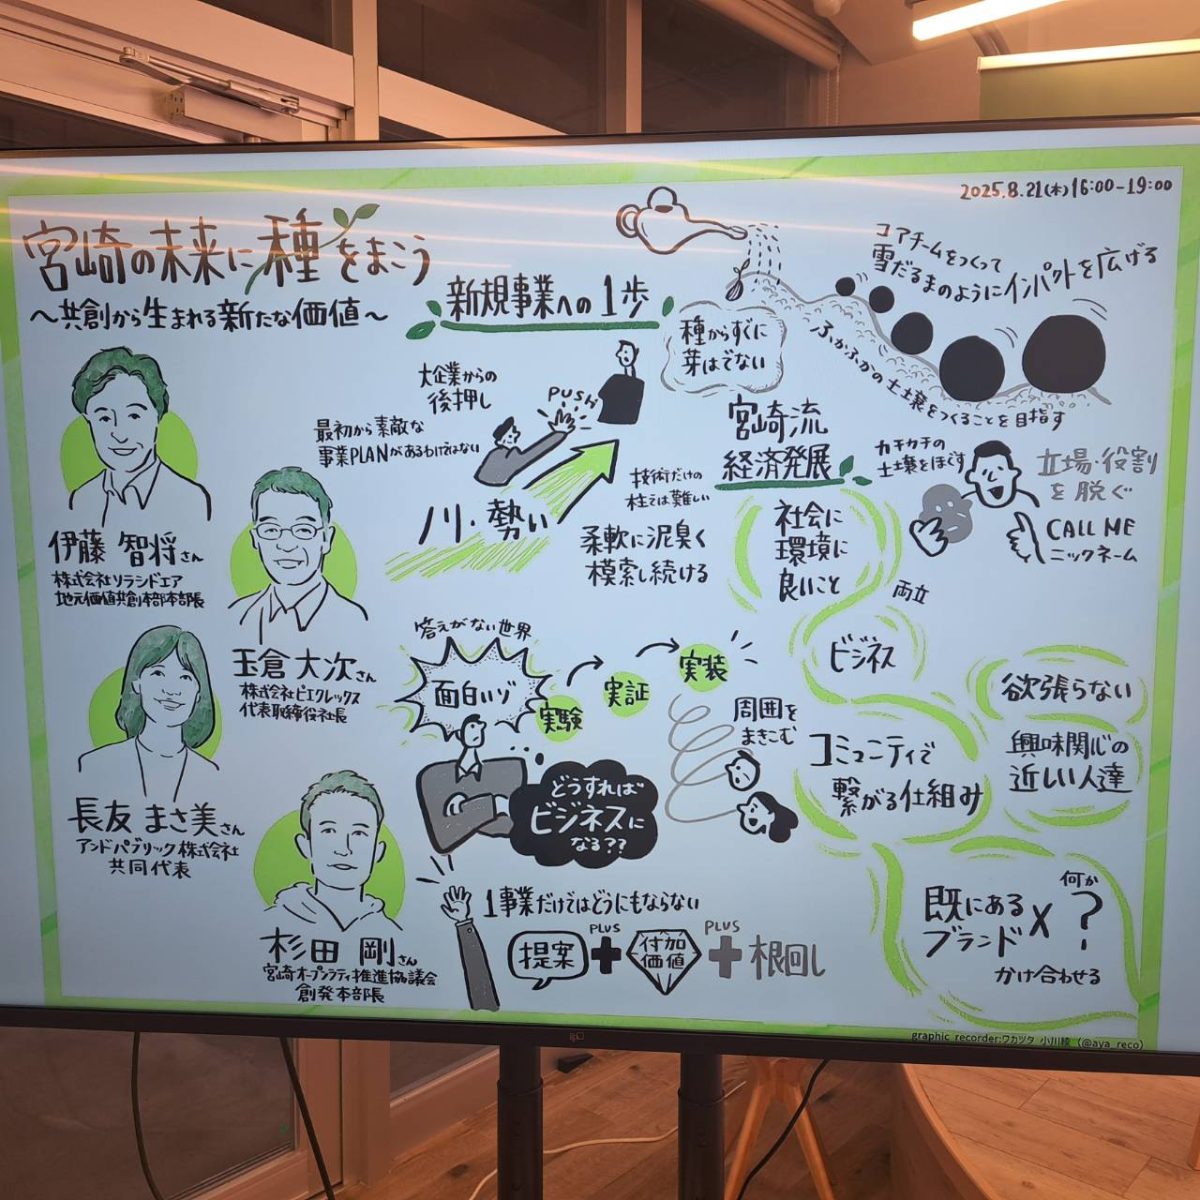 2025.8.21(木)16:00-19:00
宮崎の未来に種をまこう
～共創から生まれる新たな価値～
伊藤 智将さん
株式会社ソラシドエア
地元価値共創本部本部長
玉倉 大次さん
株式会社ピエクレックス
代表取締役社長
長友 まさ美さん
アンドパブリック株式会社
共同代表
杉田 剛さん
宮崎オープンシティ推進協議会
創発本部長
新規事業への1歩
大企業からの
後押し
PUSH
最初から素敵な
事業PLANがあるわけではない
ノリ・勢い
技術だけの
柱では難しい
柔軟に泥臭く
模索し続ける
答えがない世界
面白いゾ
実験
実証
実装
周囲を
まきこむ
どうすれば
ビジネスに
なる??
1事業だけではどうにもならない
提案
PLUS
+
付加
価値
PLUS
+
根回し
種からすぐに
芽はでない
コアチームをつくって
雪だるまのようにインパクトを広げる
ふかふかの土壌をつくることを目指す
宮崎流
経済発展
カチカチの
土壌をほぐす
立場・役割
を脱ぐ
CALL ME
ニックネーム
社会に
環境に
良いこと
両立
ビジネス
コミュニティで
繋がる仕組み
欲張らない
興味関心の
近しい人達
既にある
ブランド
×
何か
?
かけ合わせる
graphic recorder:ワカツタ 小川綾 (@aya_reco)